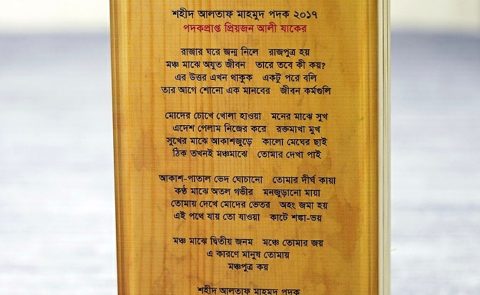 শহীদ আলতাফ মাহমুদ পদক ২০১৭
পদকপ্রাপ্ত প্রিয়জন আলী যাকের
রাজার ঘরে জন্ম নিলে রাজপুত্র হয়
মঞ্চ মাঝে অযুত জীবন তারে তবে কী কয়?
এর উত্তর এখন থাকুক একটু পরে বলি
তার আগে শোনো এক মানবের জীবন কর্মগুলি
মোদের চোখে খোলা হাওয়া মনের মাঝে সুখ
এদেশ পেলাম নিজের করে রক্তমাখা মুখ
সুখের মাঝে আকাশজুড়ে কালো মেঘের ছাই
ঠিক তখনই মঞ্চমাঝে তোমার দেখা পাই
আকাশ-পাতাল ভেদ ঘোচানো তোমার দীর্ঘ কায়া
কণ্ঠ মাঝে অতল গভীর মনজুড়ানো মায়া
তোমায় দেখে মোদের ভেতর অহং জমা হয়
এই পথে যায় তো যাওয়া কাটে শঙ্কা-ভয়
মঞ্চ মাঝে দ্বিতীয় জনম মঞ্চে তোমার জয়
এ কারণে মানুষ তোমায়
মঞ্চপুত্র কয়
শহীদ আলতাফ মাহমুদ পদক